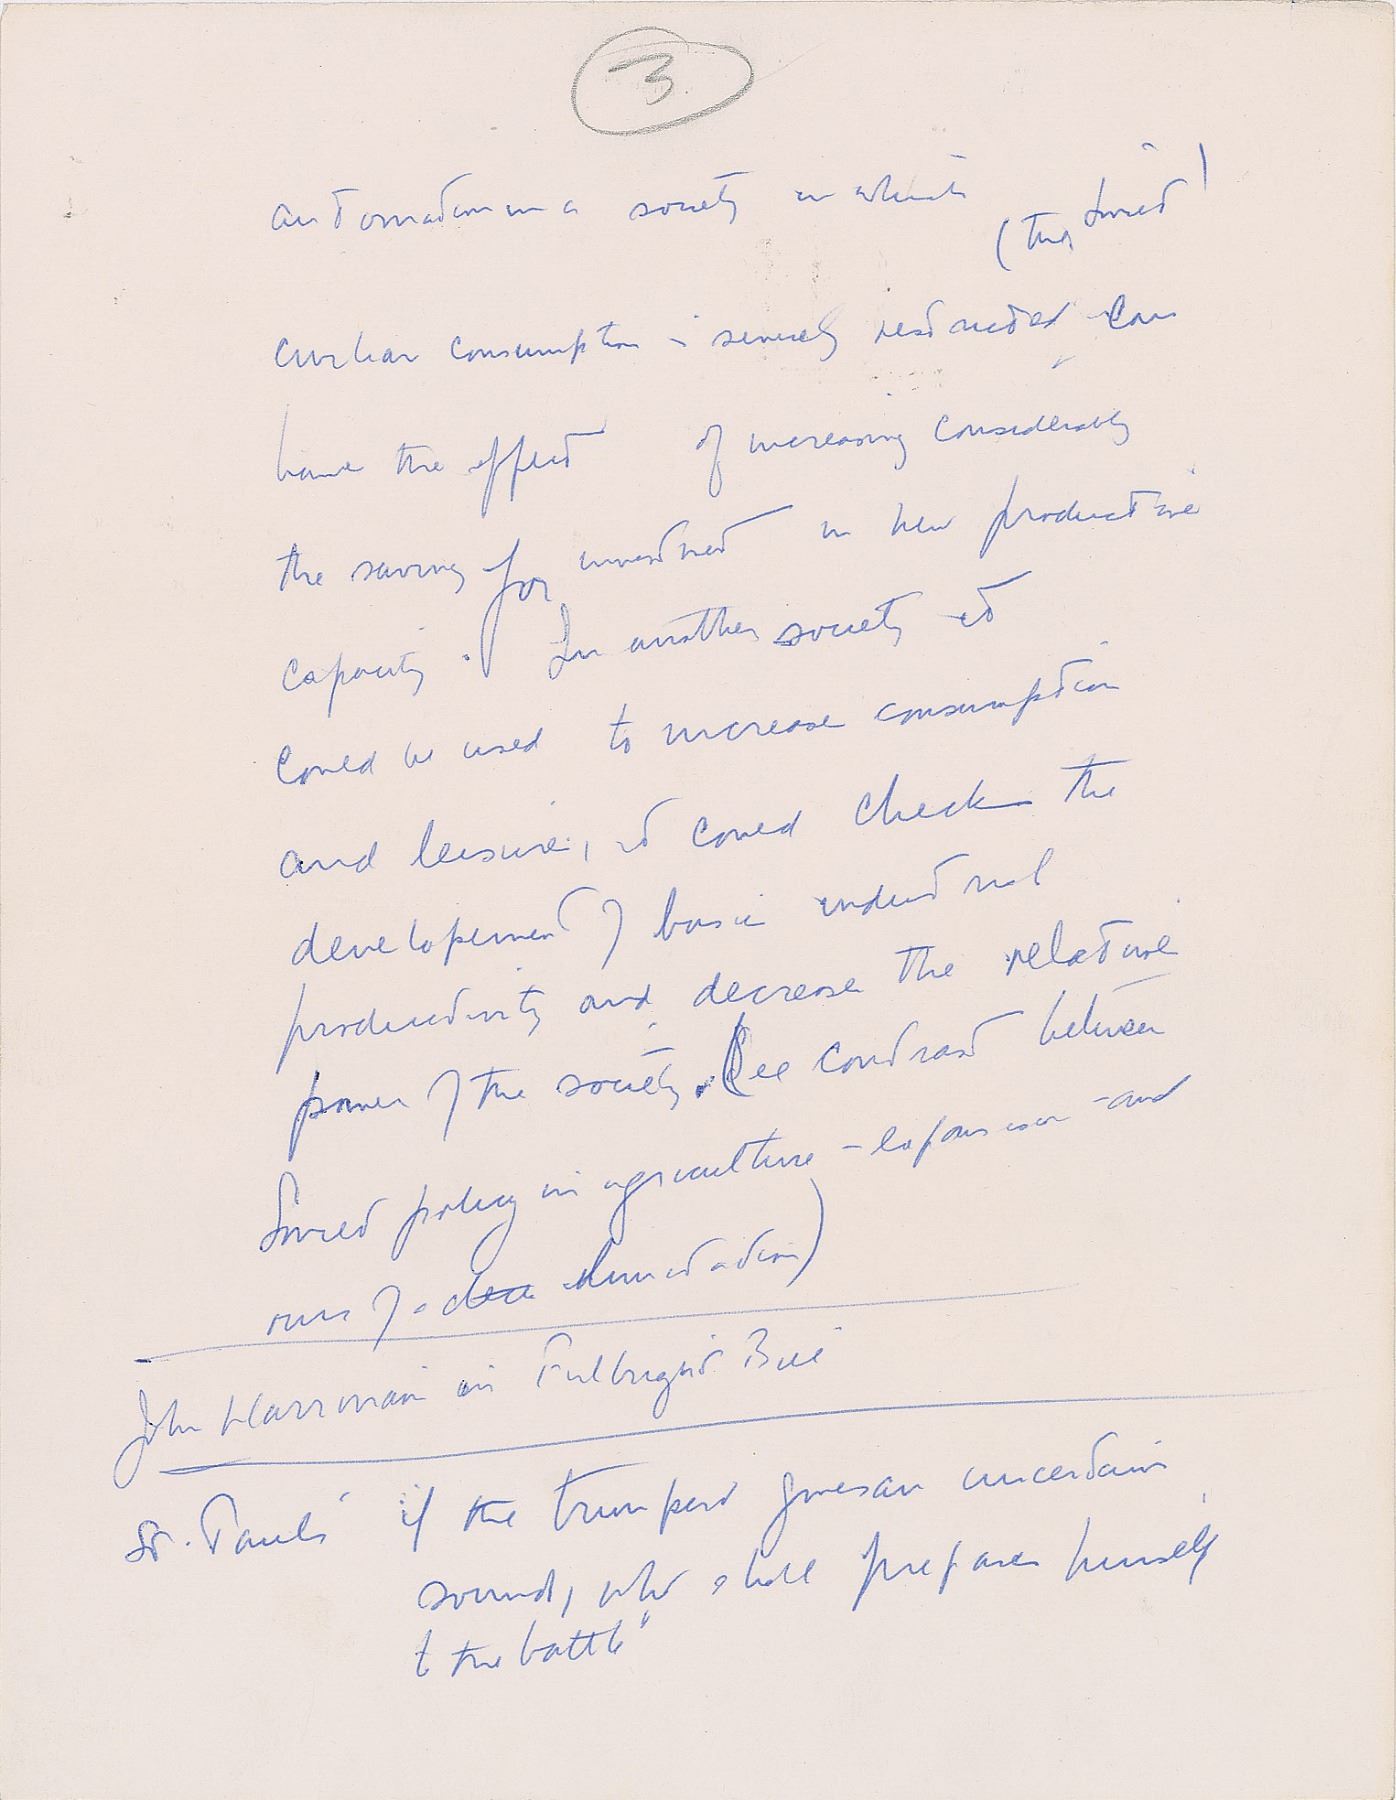 3
automation in a society in which
(the Soviet)
civilian consumption is severely restricted can
have the effect of increasing considerably
the savings for investment in new productive
capacity. In another society it
could be used to increase consumption
and leisure, it could check the
development of basic industrial
productivity and decrease the relative
power of the society. (See contrast between
Soviet policy in agriculture - expansion - and
ours of a
John Harriman in Fulbright Bill
St. Paul's "if the trumpet gives an uncertain
sound, who shall prepare himself
to the battle"